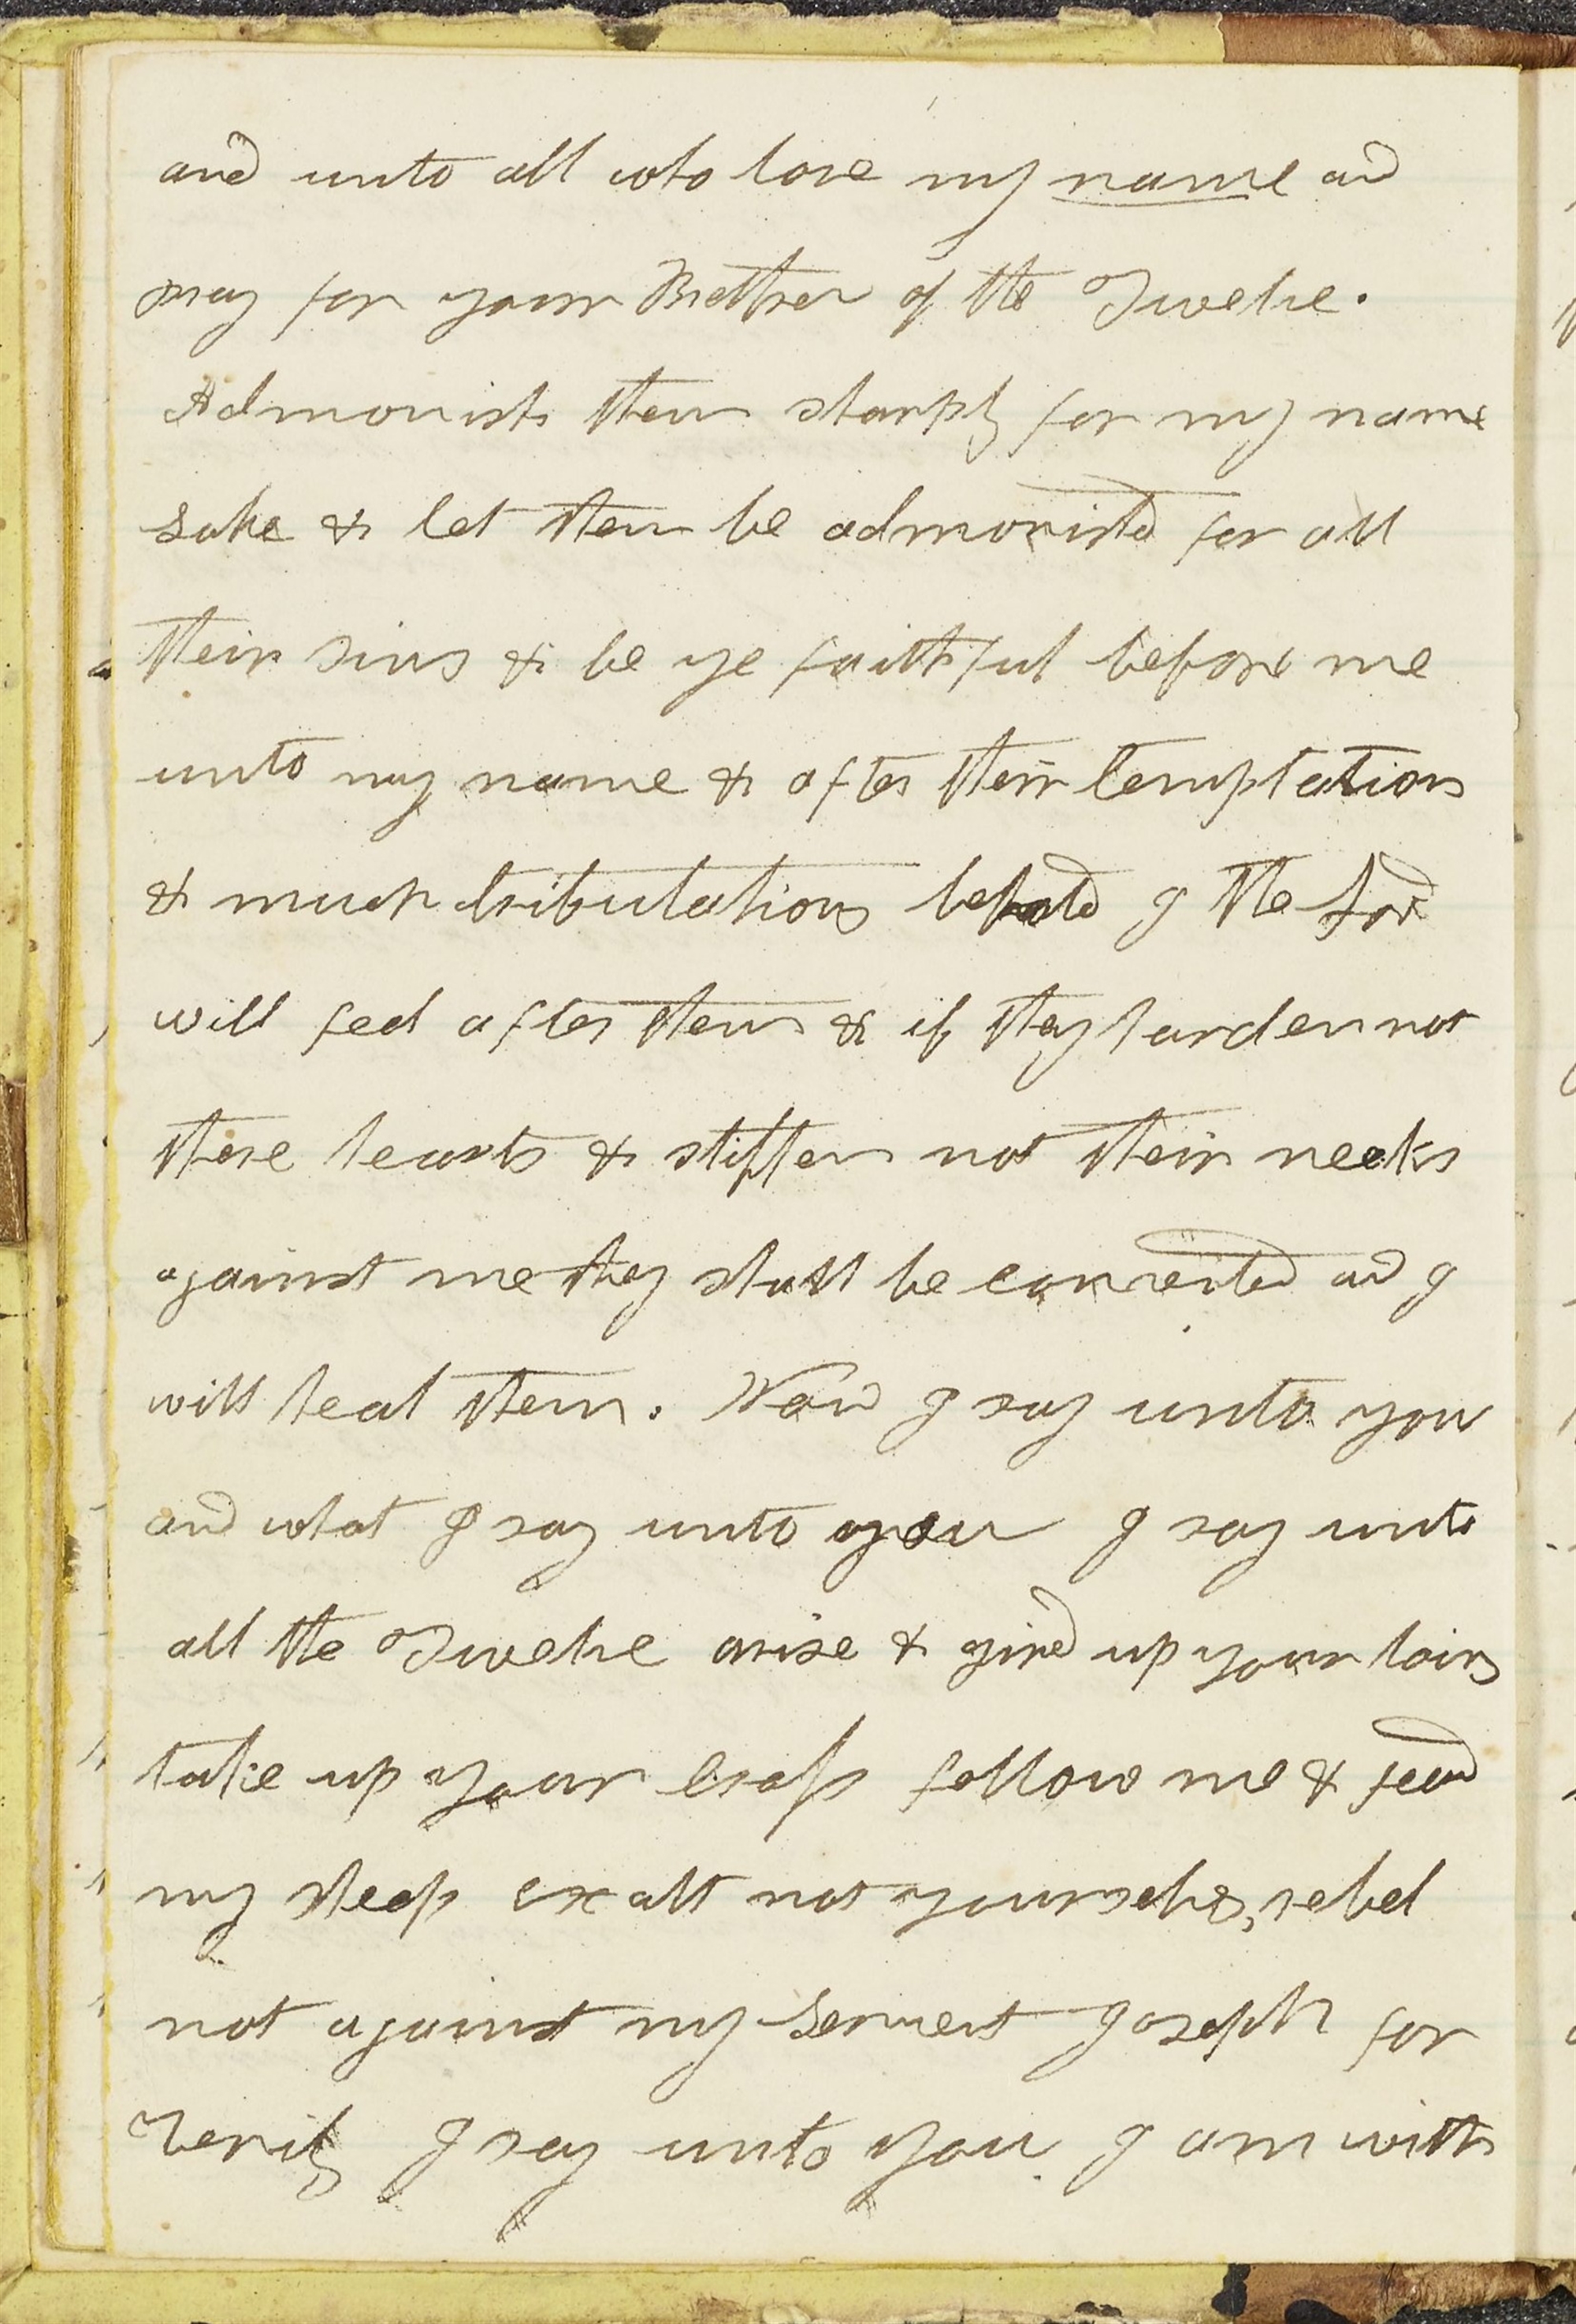 and unto all who love my name and
pray for your Brethren of the Twelve.
Admonish them sharply for my name
sake & let them be admonished for all
their sins & be ye faithful before me
unto my name & after their temptations
& much tribulations behold I the Lord
will feel after them & if they harden not
there hearts & stiffen not their necks
against me they shall be converted and I
will heal them. Now I say unto you
and what I say unto you I say unto
all the Twelve arise & gird up your loins
take up your cross follow me & feed
my sheep exalt not yourselves, rebel
not against my servent Joseph for
Verily I say unto you I am with